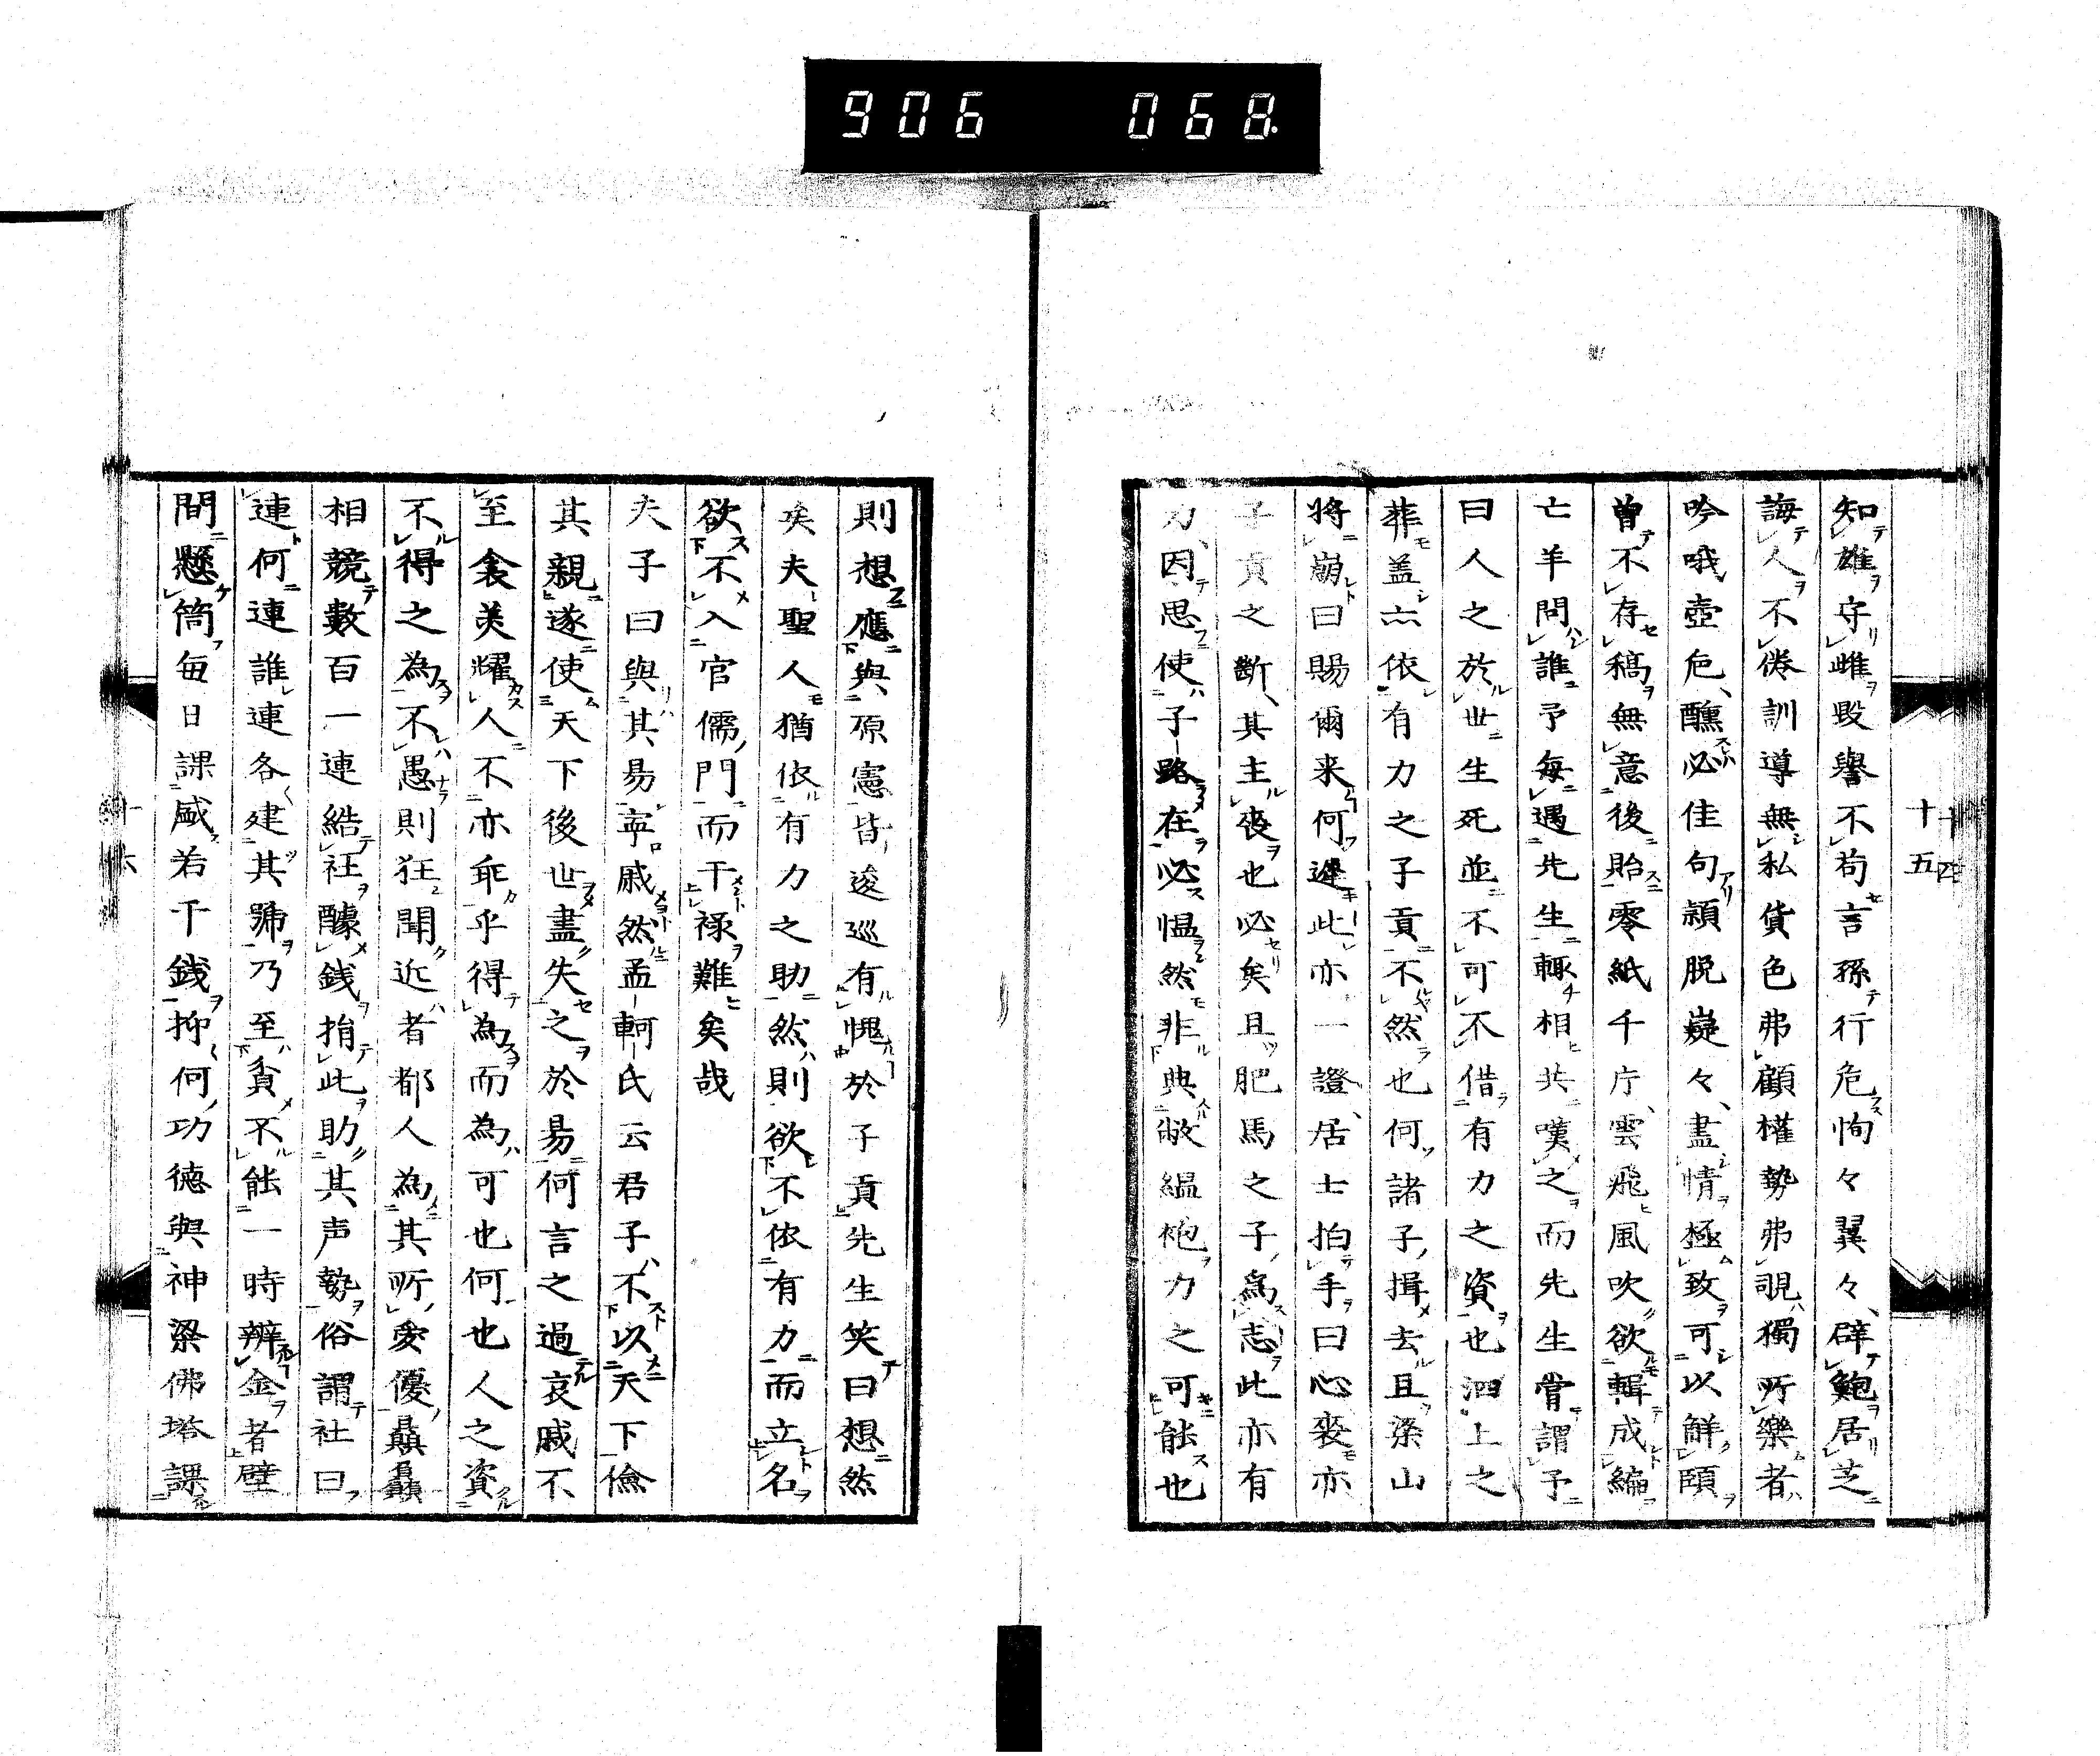 906 068
十五
知雄守雌毀譽不苟言孫行危恂々翼々辟鮑居芝
誨人不倦訓導無私貨色弗顧權勢弗覗獨所樂者
吟哦壺卮醺必佳句穎脱嶷々盡情極致可以解頤
曾不存稿無意後貽零紙千片雲飛風吹欲輯成編
亡羊問誰予每遇先生輒相共嘆之而先生嘗謂予
曰人之於世生死並不可不借有力之資也泗上之
葬盖亦依有力之子貢不然也何諸子揖去且梁山
將崩曰賜爾来何遲此亦一證居士拍手曰心喪亦
子貢之斷其主喪也必矣且肥馬之子為志此亦有
力因思使子路在必慍然非與敝縕袍力之可能也
則想應與原憲皆逡巡有愧於子貢先生笑曰想然
矣夫聖人猶依有力之助然則欲不依有力而立名
欲不入官儒門而干祿難矣哉
夫子曰與其易寧戚然孟軻氏云君子不以天下儉
其親遂使天下後世盡失之於易何言之過哀戚不
至衾美耀人不亦乖乎得為而為可也何也人之資
不得之為不愚則狂聞近者都人為其所愛優贔屭
相競數百一連結社醵錢捐此助其声勢俗謂社曰
連何連誰連各建其號乃至貧不能一時辨金者壁
間懸筒每日課盛若千錢抑何功德與神梁佛塔課